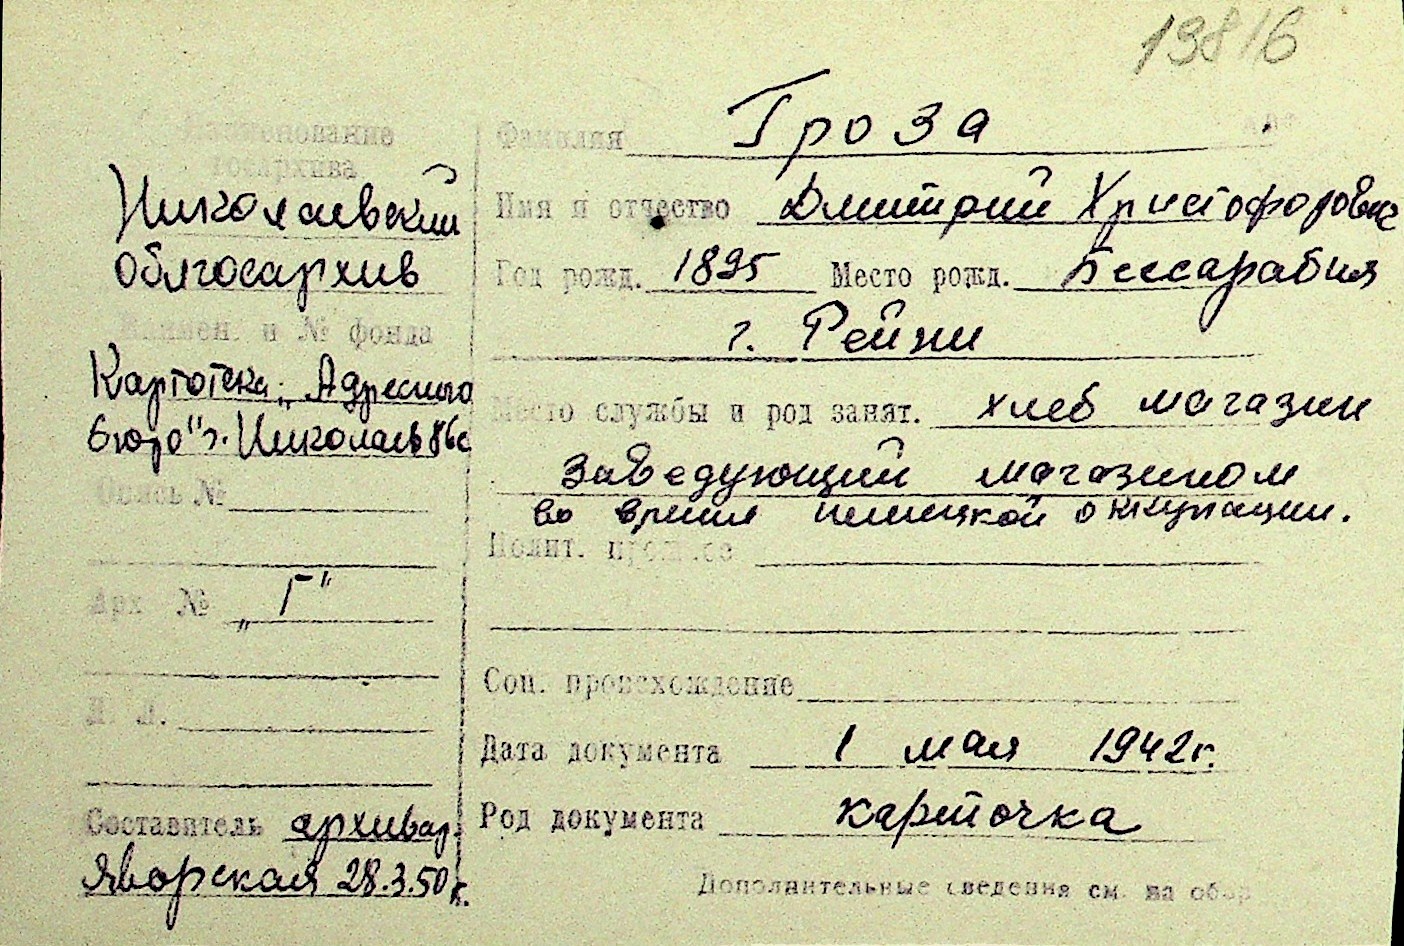 19816
Наименование
госархива
Николаевский
облгосархив
Наимен. и № фонда
Картотека „Адресного
бюро" г. Николаев
Опись №
Арх №
„Г"
Л. Л.
Составитель архивар.
Яворская 28.3.50г.
Фамилия Гроза
Имя и отчество Дмитрий Христофорович
Год рожд. 1895 Место рожд. Бессарабия
г. Рейни
Место службы и род занят. хлеб магазин
Заведующий магазином
во время немецкой оккупации.
Полит. прош.
Соц. происхождение
Дата документа 1 мая 1942г.
Род документа карточка
Дополнительные сведения см. на обор